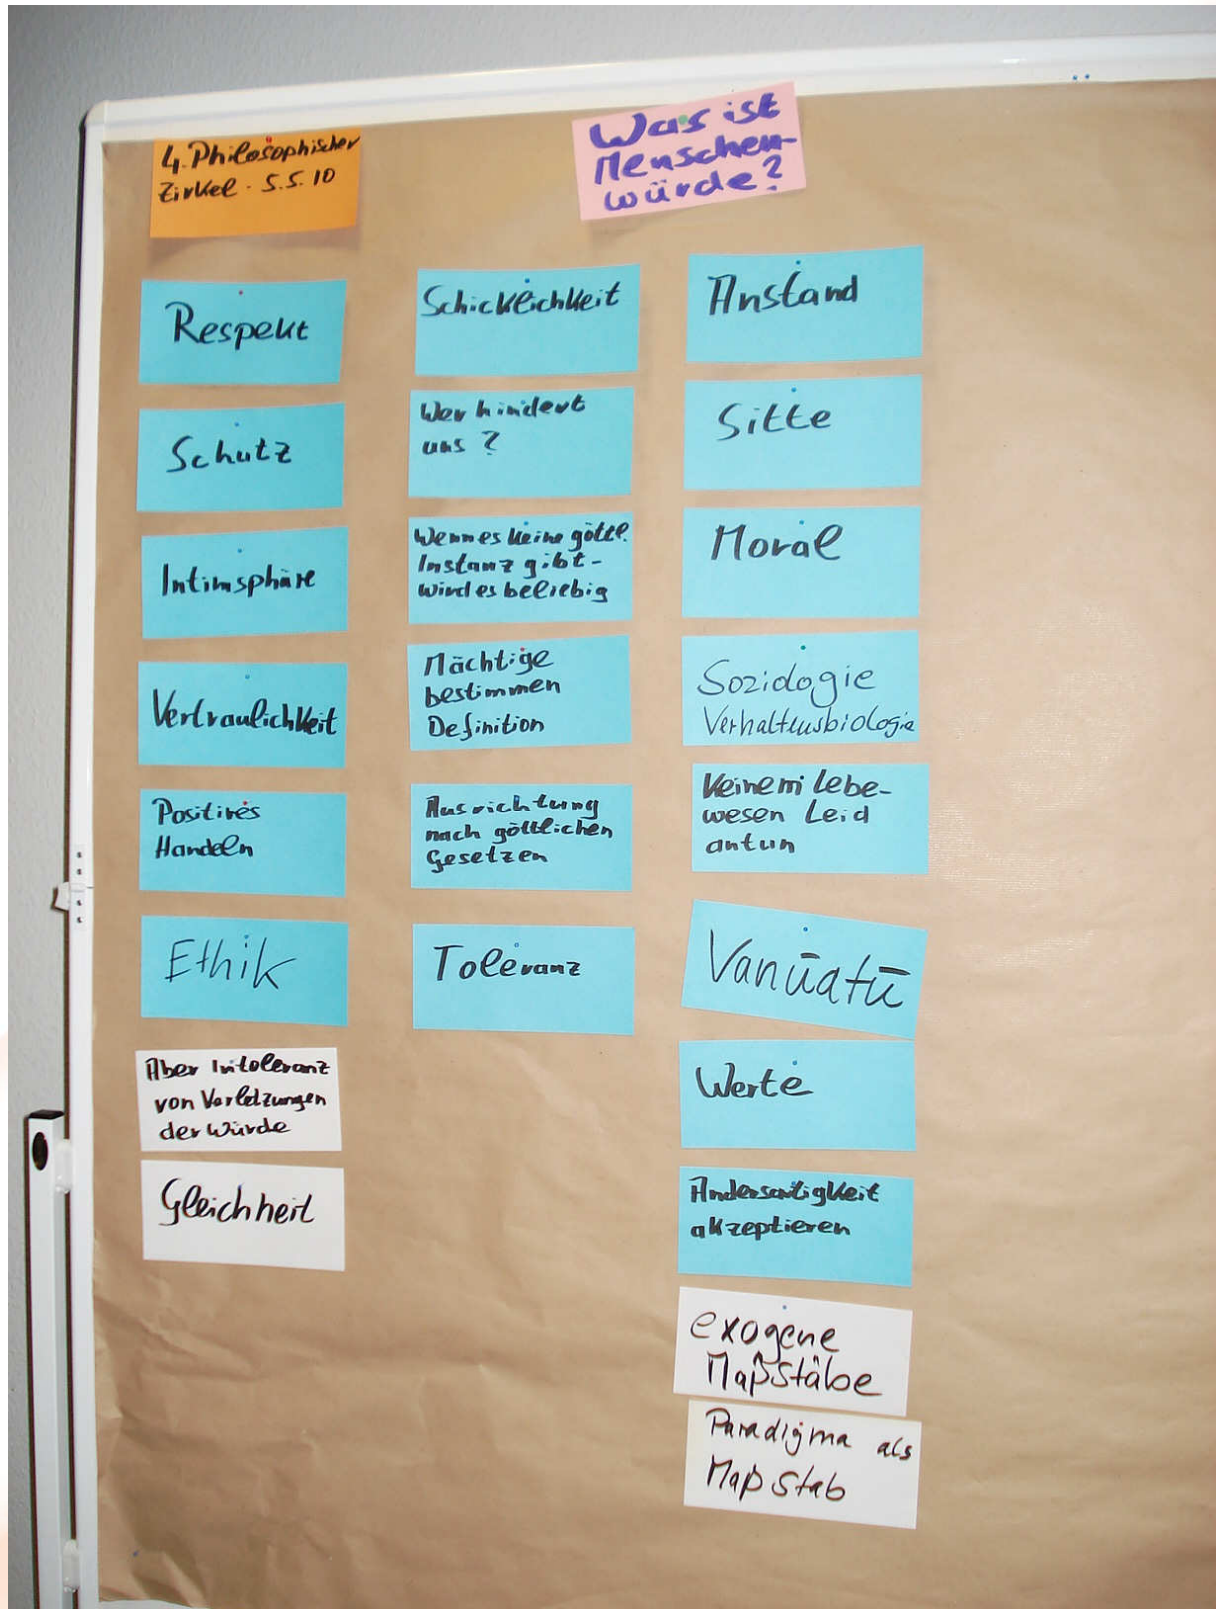 4. Philosophischer
Zirkel - 5.5.10
Was ist
Menschen-
würde?
Respekt
Schutz
Intimsphäre
Vertraulichkeit
Positives
Handeln
Ethik
Aber Intoleranz
von Verletzungen
der Würde
Gleichheit
Schicklichkeit
Wer hindert
uns?
Wenn es keine göttl.
Instanz gibt -
wird es beliebig
Mächtige
bestimmen
Definition
Ausrichtung
nach göttlichen
Gesetzen
Toleranz
Anstand
Sitte
Moral
Soziologie
Verhaltensbiologie
Keinem Lebe-
wesen Leid
antun
Vanūatū
Werte
Andersartigkeit
akzeptieren
exogene
Maßstäbe
Paradigma als
Maßstab